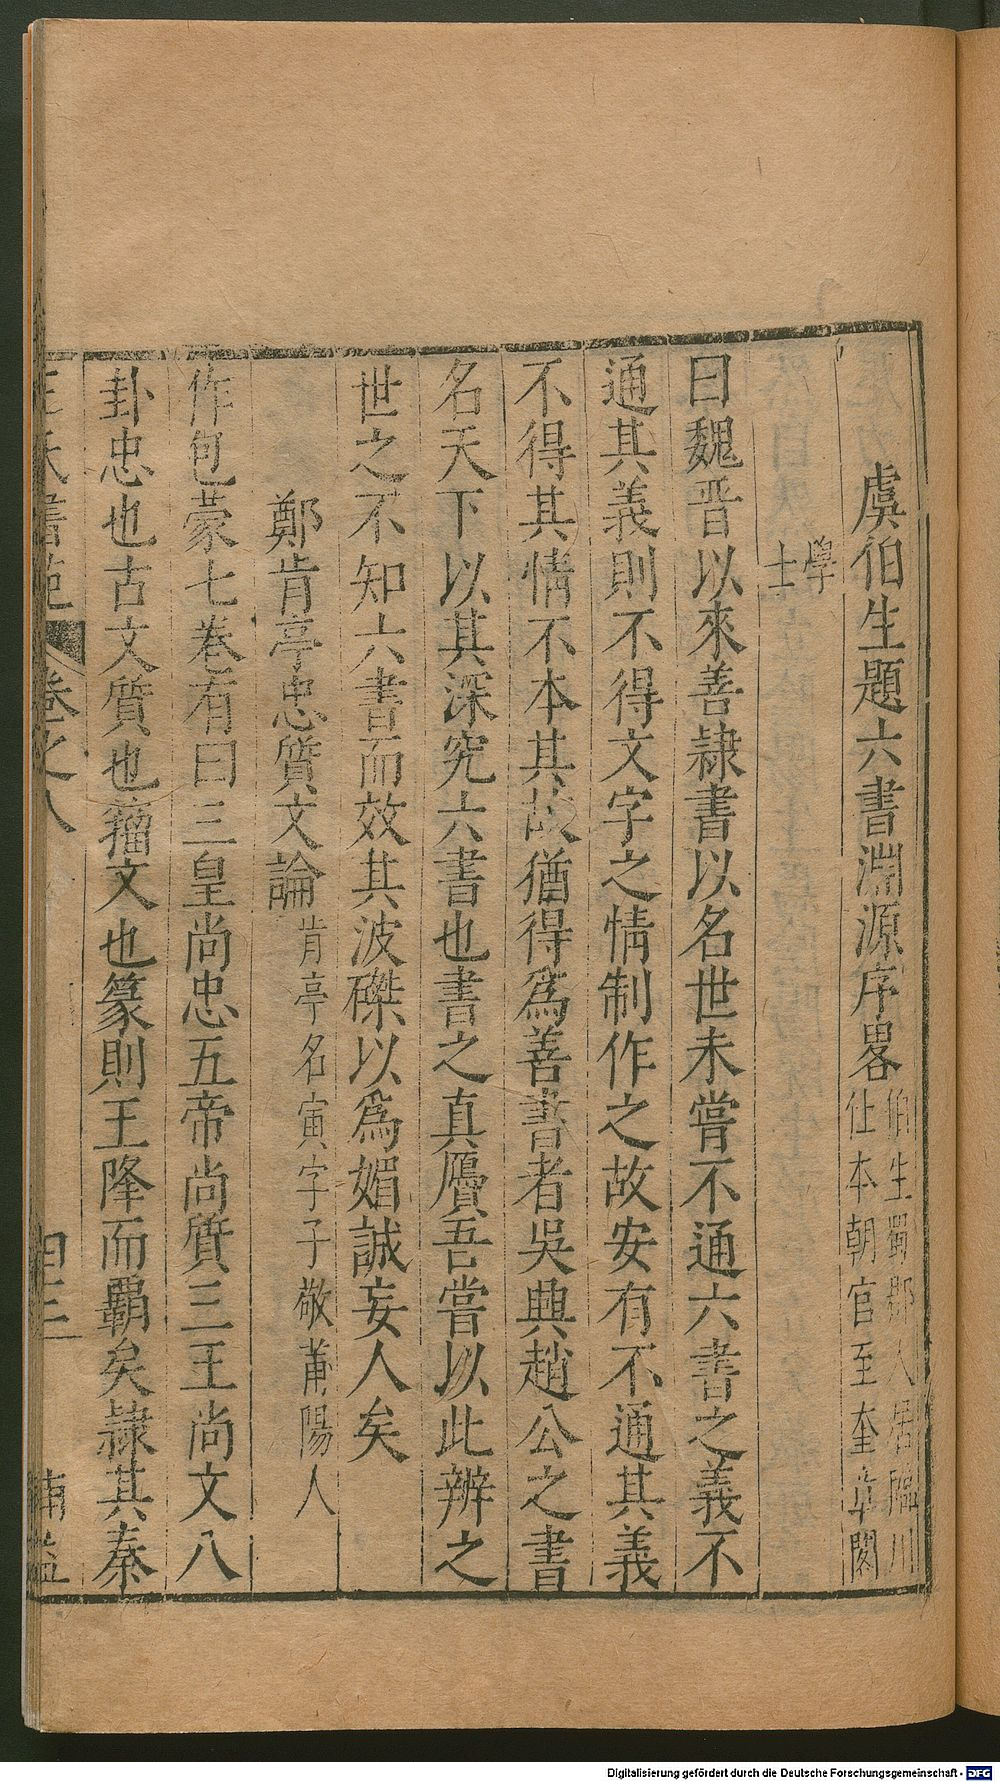 虞伯生題六書淵源序畧伯生蜀郡人居臨川仕本朝官至奎章閣
學士
曰魏晋以來善隷書以名世未嘗不通六書之義不
通其義則不得文字之情制作之故安有不通其義
不得其情不本其故猶得為善書者吳興趙公之書
名天下以其深究六書也書之真贗吾嘗以此辨之
世之不知六書而效其波磔以為媚誠妄人矣
鄭肯亭忠質文論肯亭名寅字子敬莆陽人
作包蒙七卷有曰三皇尚忠五帝尚質三王尚文八
卦忠也古文質也籀文文也篆則王降而霸矣隷其秦
王氏書苑 卷之八 四三 南監
Digitalisierung gefördert durch die Deutsche Forschungsgemeinschaft - DFG